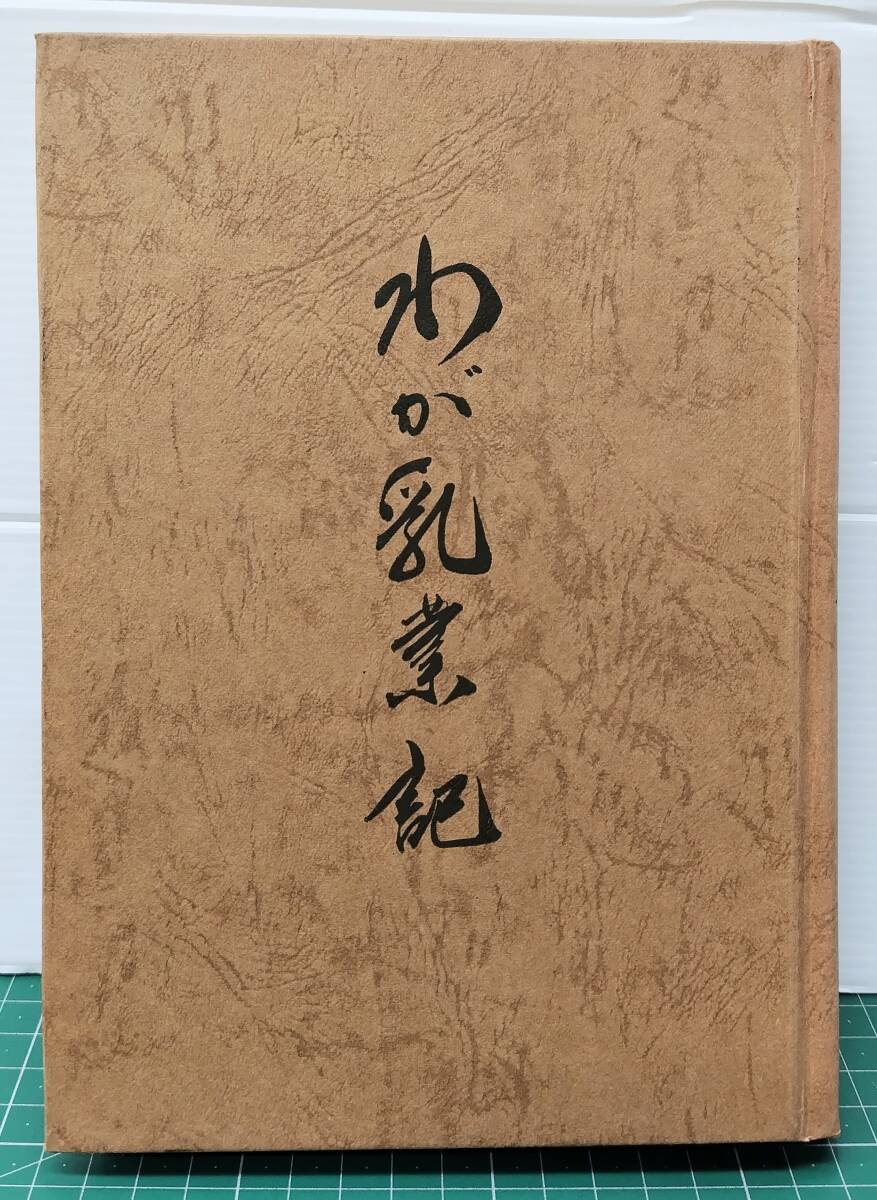 わが乳業記